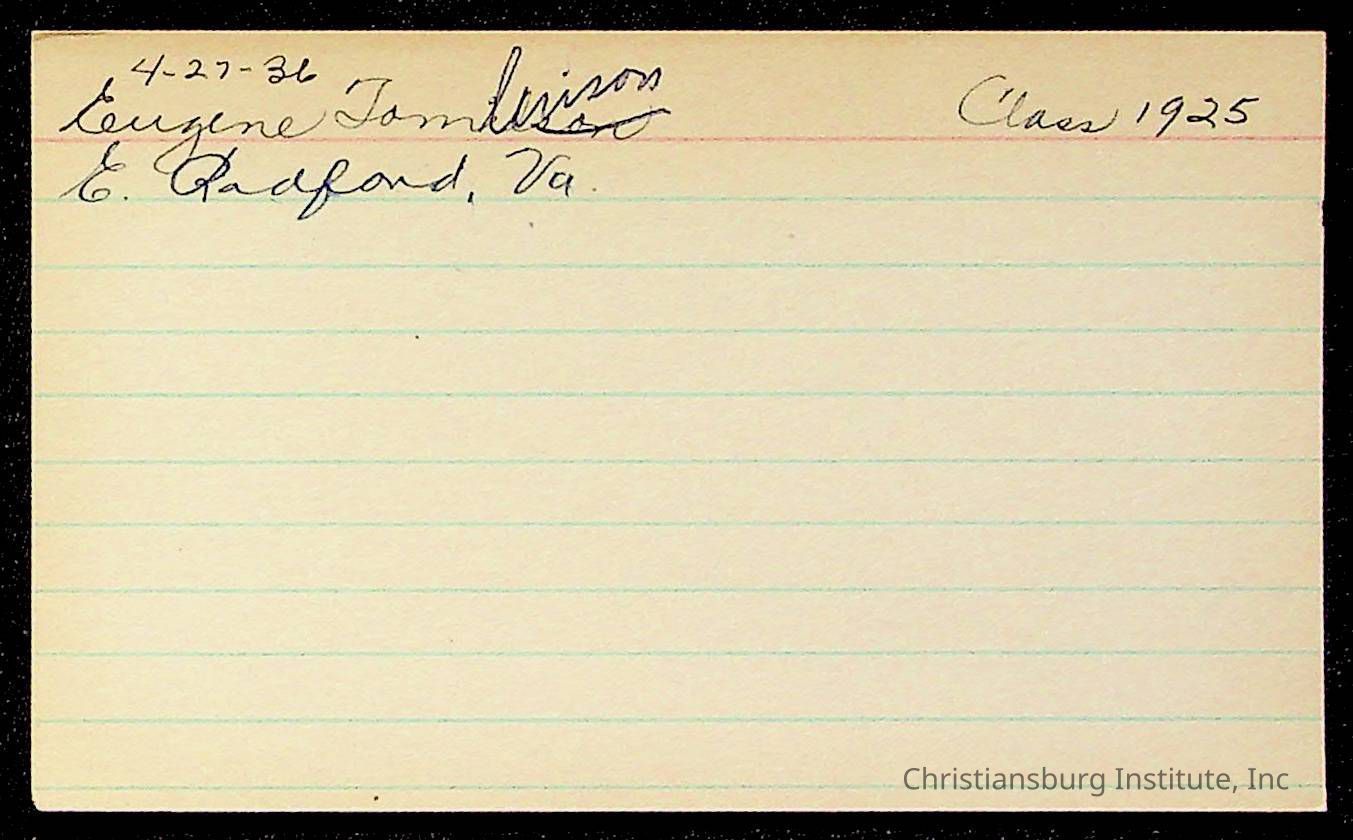 4-27-36
Eugene Tomlinson Class 1925
E. Radford, Va.
Christiansburg Institute, Inc